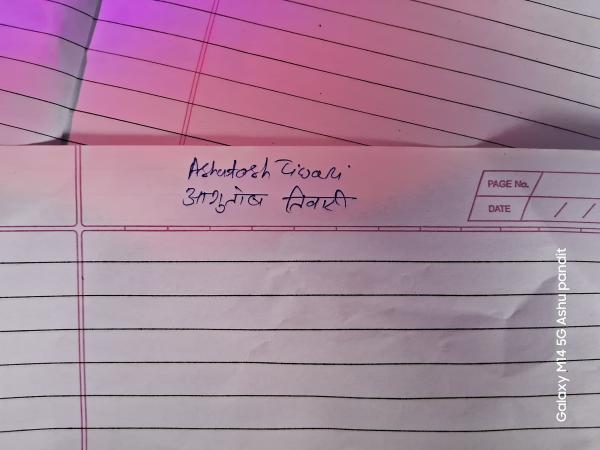 Ashutosh Tiwari
आशुतोष तिवारी
PAGE No.
DATE / /
Galaxy M14 5G Ashu pandit